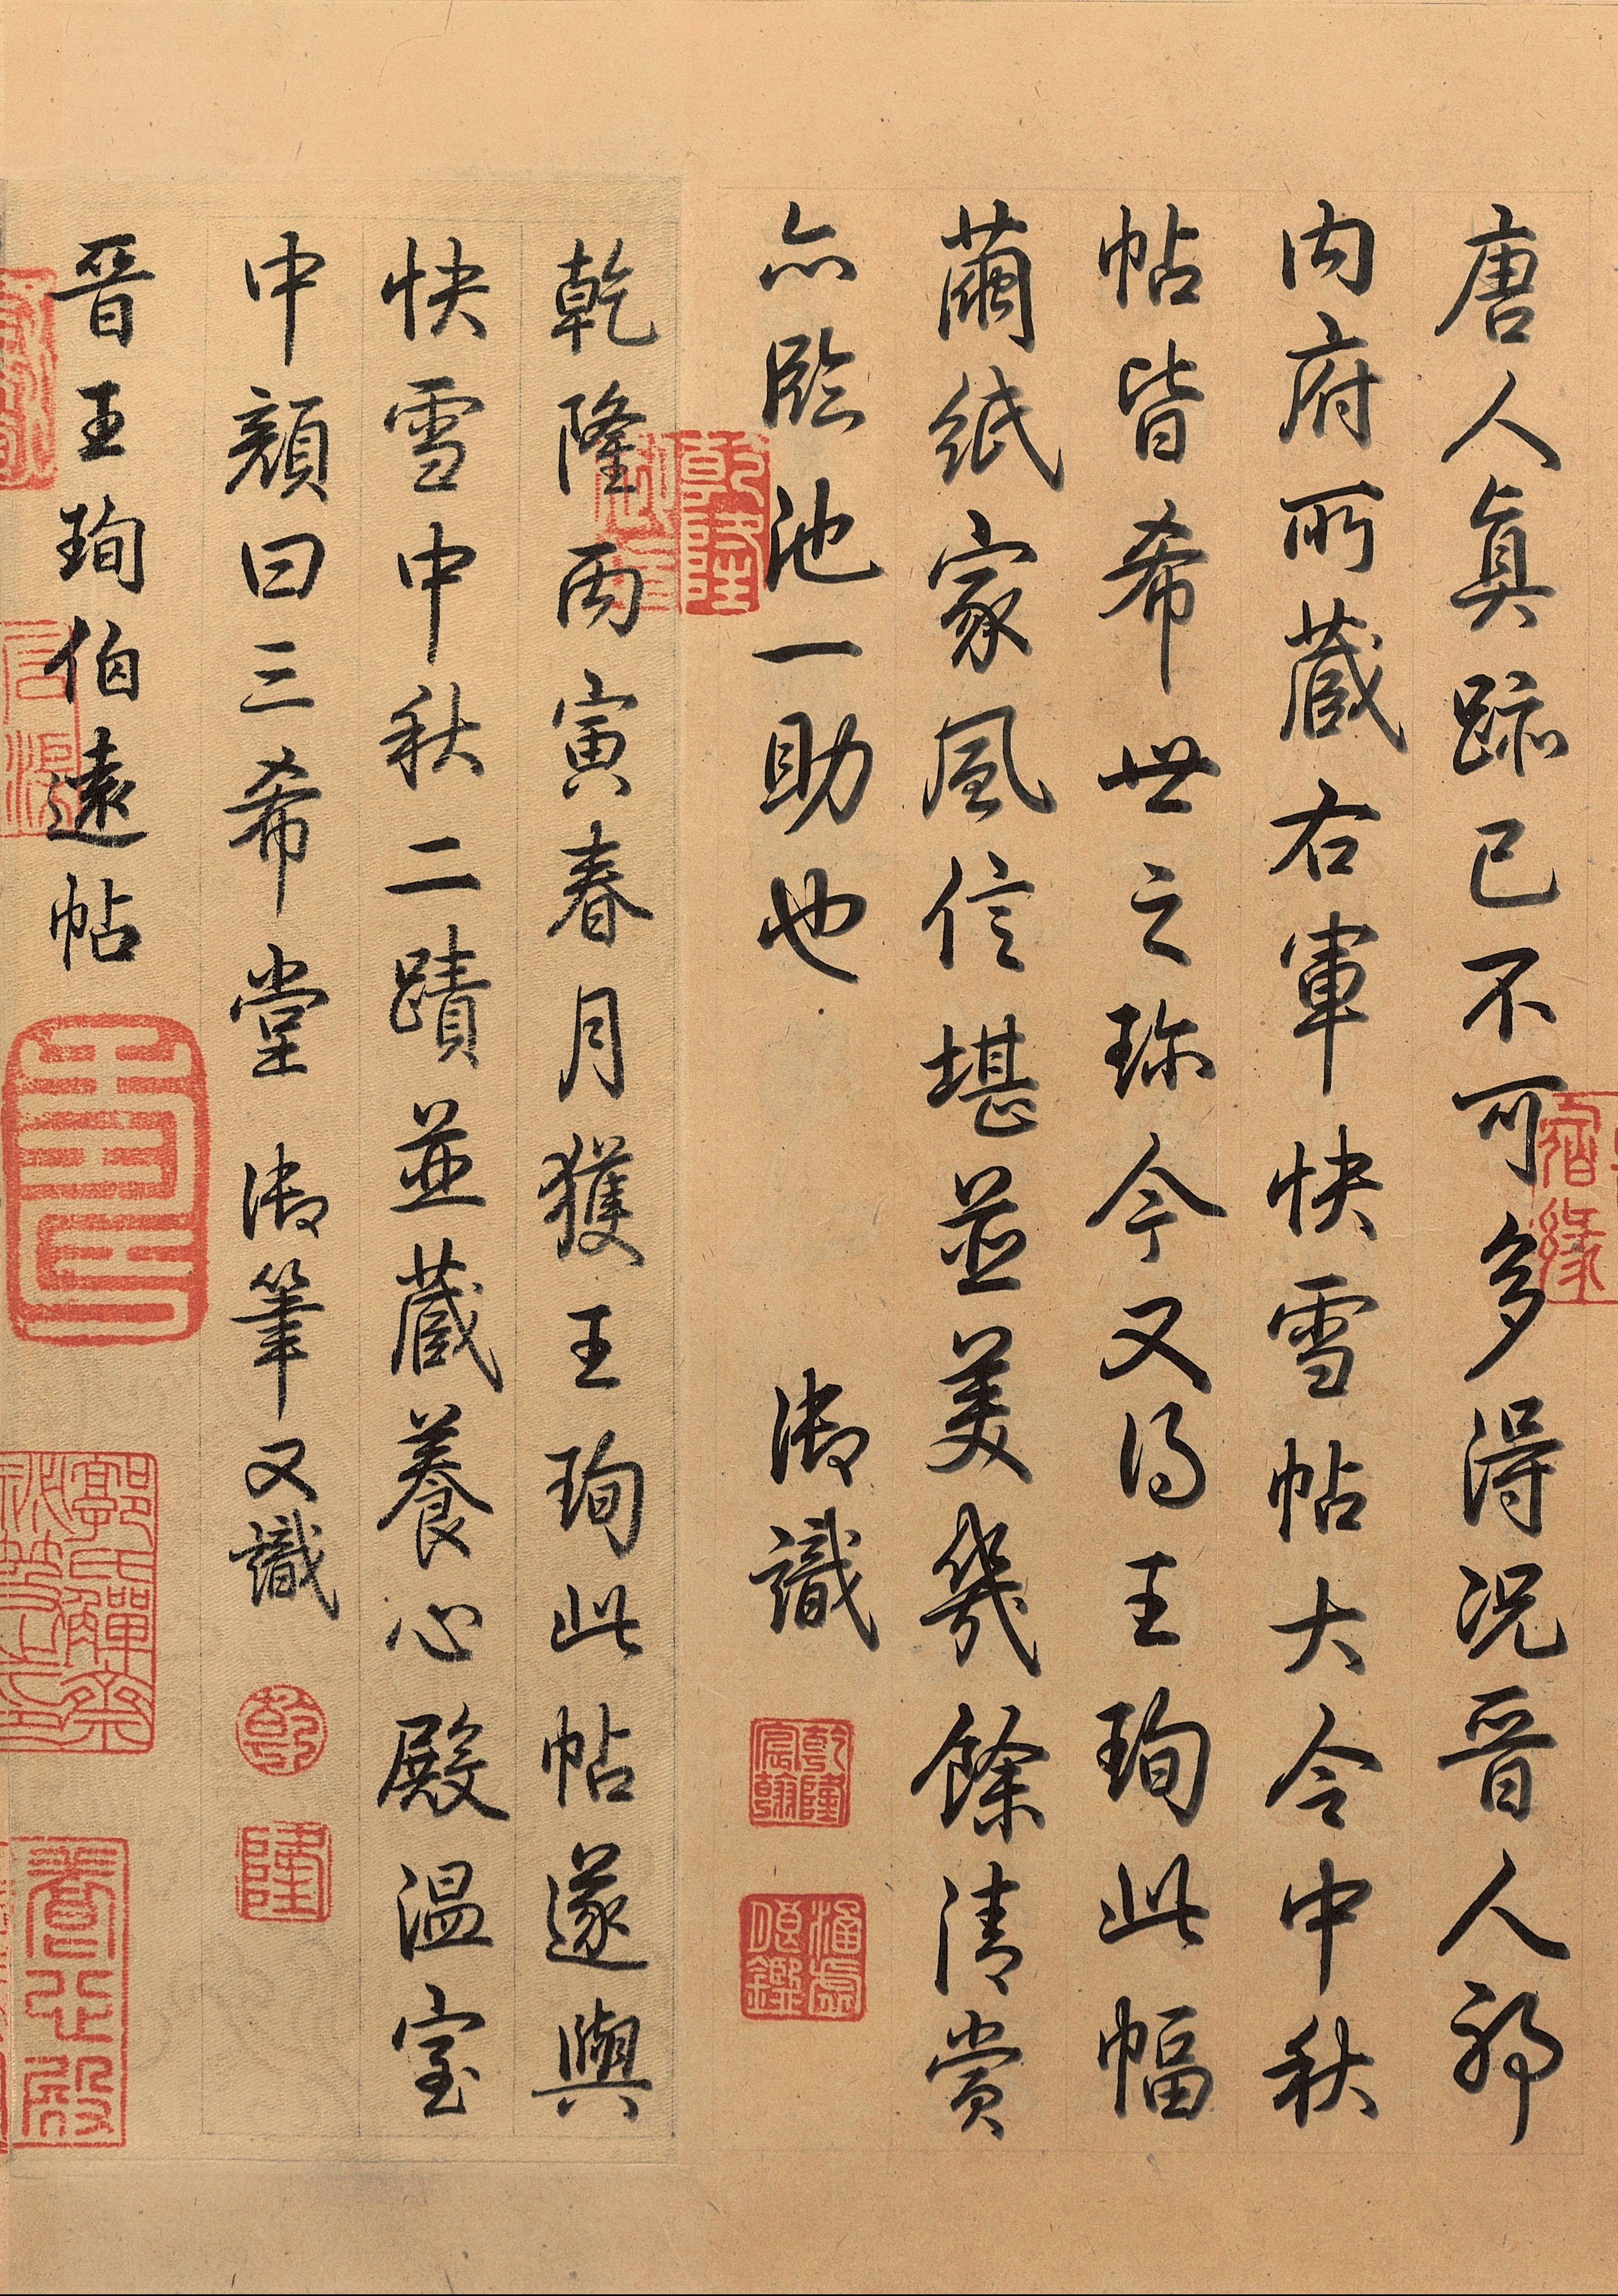 唐人真跡已不可多得況晉人耶
內府所蔵右軍快雪帖大令中秋
帖皆希世之珎今又得王珣此幅
繭紙家風信堪並美幾餘清賞
亦臨池一助也 御識
乾隆宸翰
乾隆
乾隆丙寅春月獲王珣此帖遂與
快雪中秋二蹟並蔵養心殿溫室
中顏曰三希堂 御筆又識
乾
隆
晉王珣伯遠帖
郭氏觶齋秘笈之印
養心殿